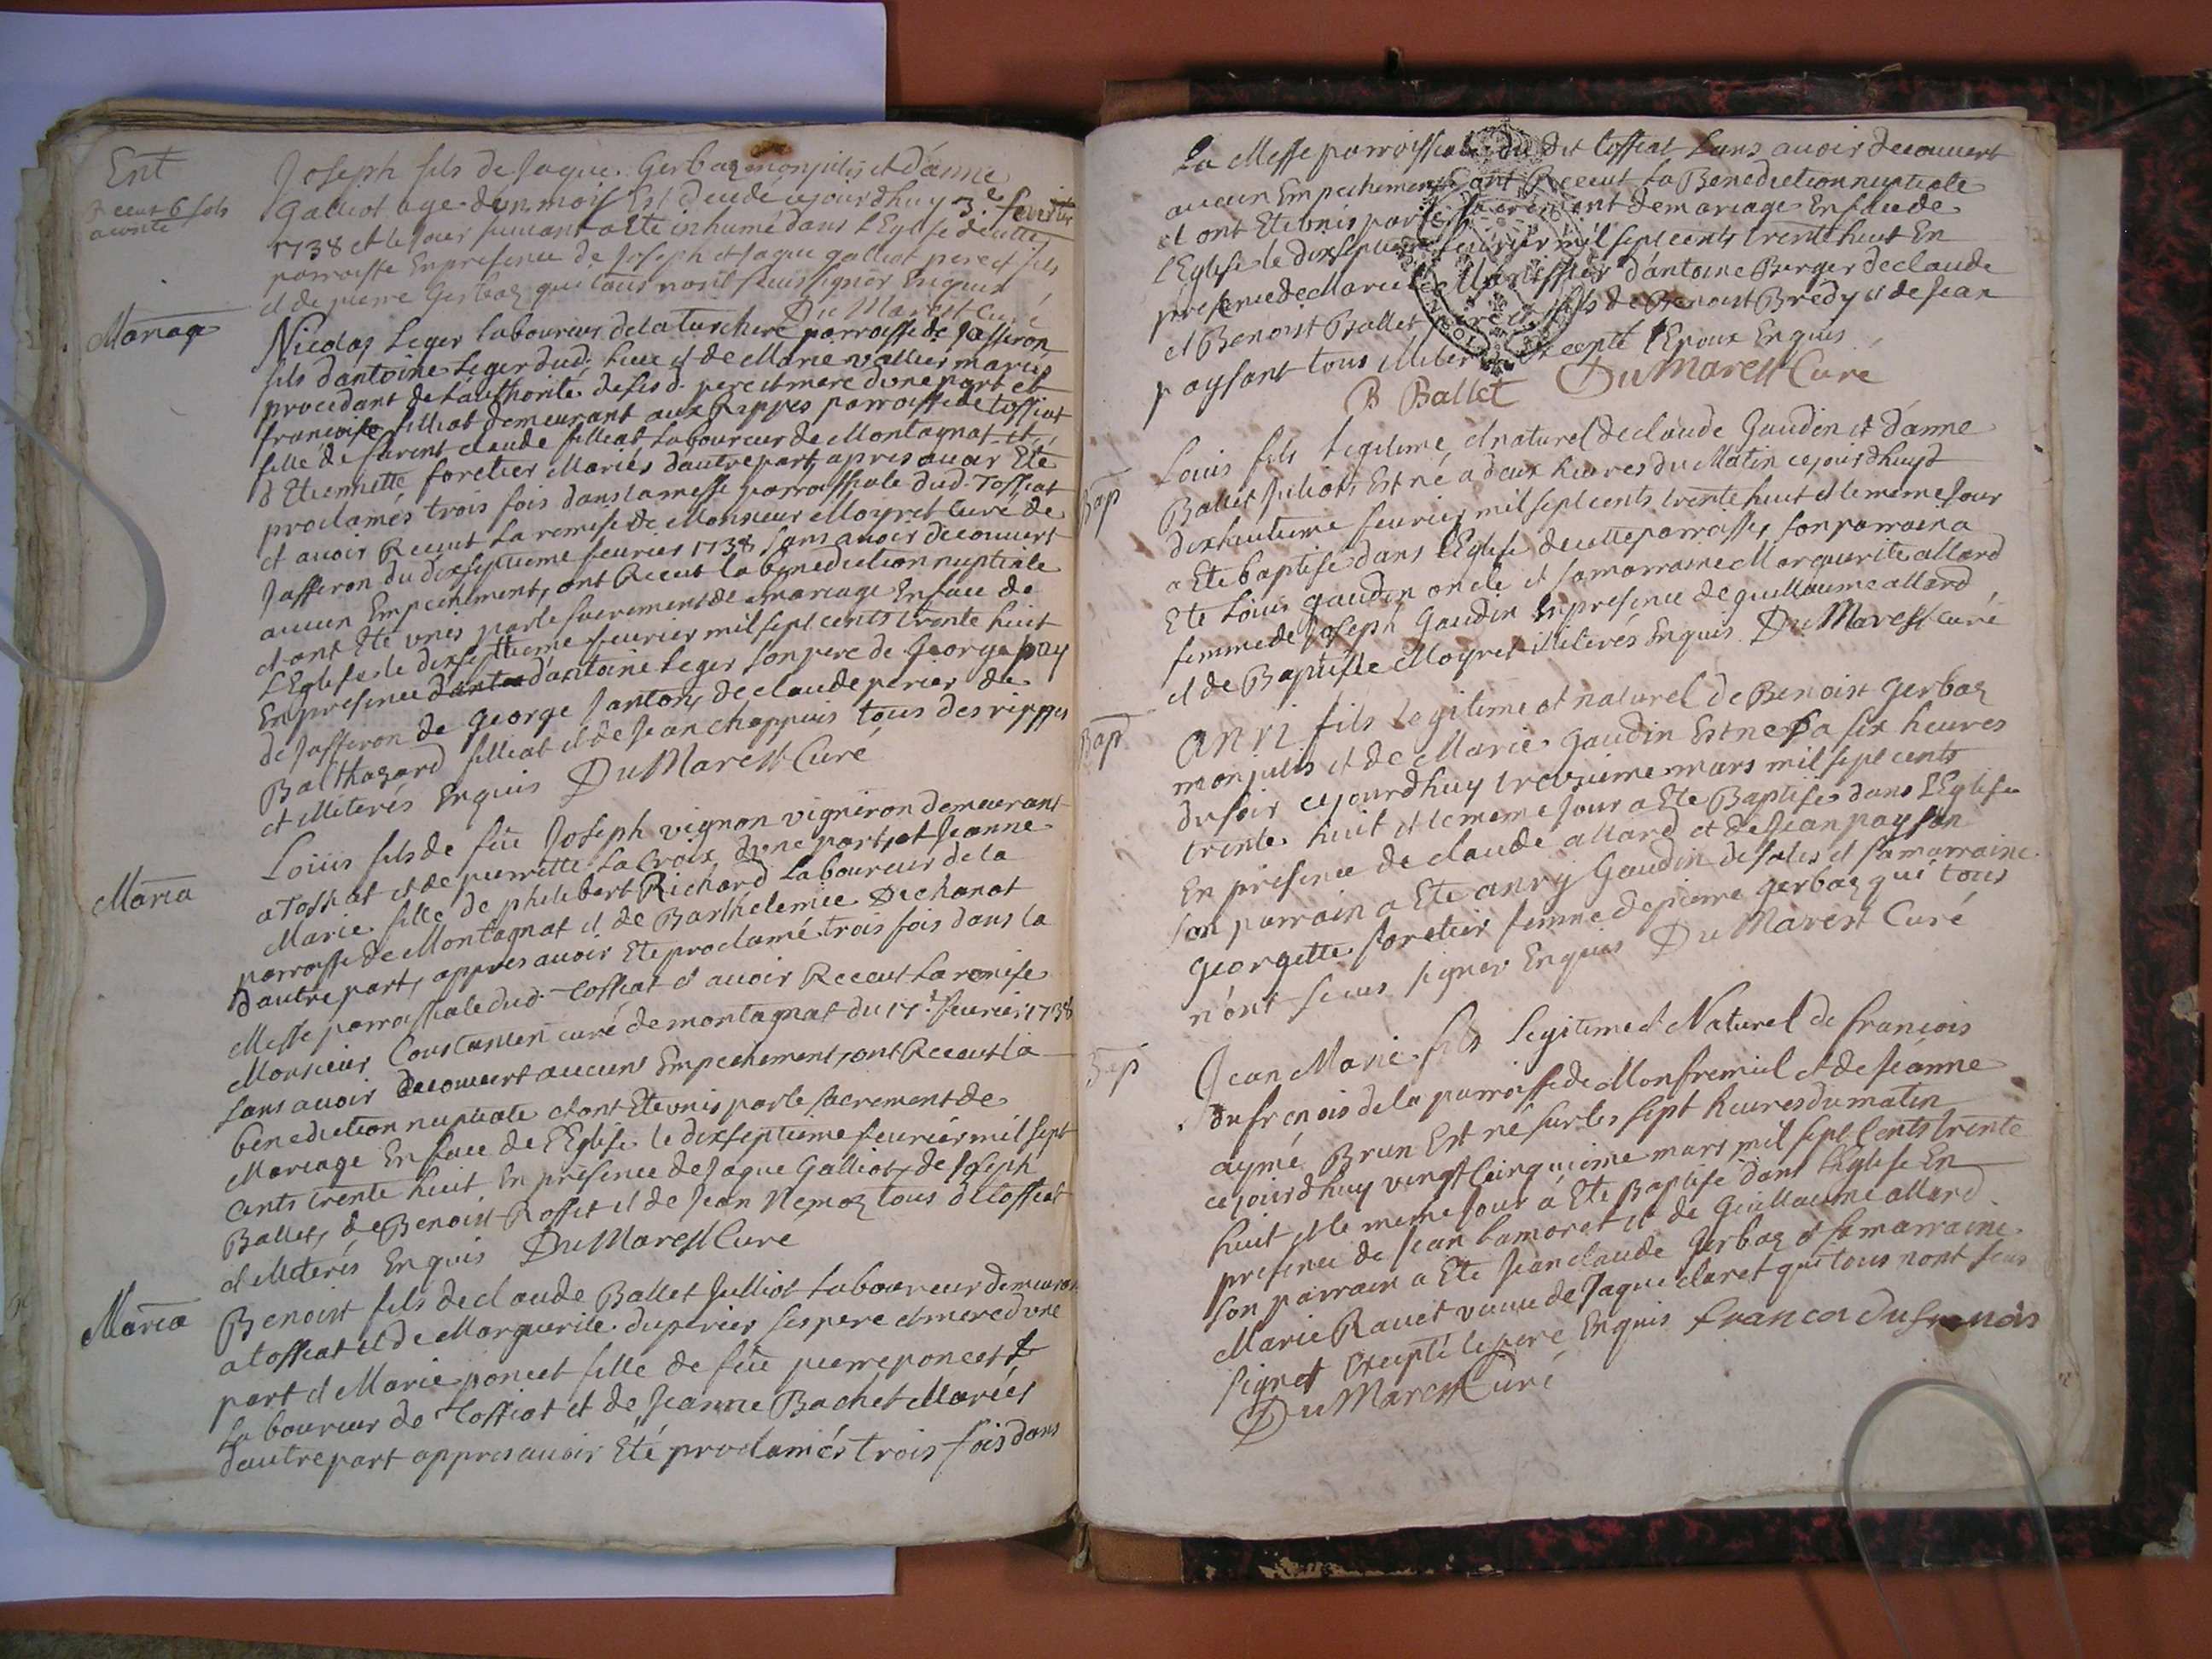 Ent
Receut 6 sols
a conte
Joseph fils de Jaque Gerbaz monjulis et d'anne
Galliot age d'un mois Est decedé cejourdhuy 3.e fevrier
1738 et le jour suivant a Eté inhumé dans l'Eglise de cette
parroisse En presence de Joseph et Jaque galliot pere et fils
et de pierre Gerbaz qui tous n'ont sceus signer Enquis
Du Marest Curé
Mariage
Nicolas Leger laboureur de la turchere parroisse de Jasseron
fils d'antoine Leger dud. lieu et de Marie vallier mariés
procedant de l'authorité de sesd. pere et mere d'une part et
francoise filliat demeurant aux Rippes parroisse de tossiat
fille de furent claude filliat Laboureur de Montagnat et
d'Etiennette foretier Mariés dautre part, apres avoir Eté
proclamés trois fois dans la messe parroissiale dud. Tossiat
et avoir Receut La remise de Monsieur Moyret Curé de
Jasseron du dixseptieme fevrier 1738 sans avoir decouvert
aucun Empechement, ont Receut la benediction nuptiale
et ont Eté unis par le sacrement de mariage En face de
L'Eglise le dixseptieme fevrier mil sept cents trente huit
En presence d'antoine Leger son pere de George pay
de Jasseron de george Janton, de claude perier de
Balthazard filliat et de Jean chappuis tous des rippes
et illiterés Enquis Du Marest Curé
Maria
Loüis fils de feu Joseph vignon vigneron demeurant
a Tossiat et de pierrette La Croix d'une part, et Jeanne
Marie fille de philibert Richard Laboureur de la
parroisse de Montagnat et de Barthelemie Dechanot
d'autre part, appres avoir Eté proclamé trois fois dans la
Messe parroissiale dud. Tossiat et avoir Receut La remise
Monsieur Constantin curé de montagnat du 17.e fevrier 1738
sans avoir decouvert aucuns Empechement, ont Receut la
benediction nuptiale et ont Eté unis par le sacrement de
Mariage En face de l'Eglise le dixseptieme fevrier mil sept
cents trente huit En presence de Jaque Galliot, de Joseph
Ballet, de Benoist Rosset et de Jean Nemoz tous de tossiat
et illiterés Enquis Du Marest Curé
Maria
Benoist fils de claude Ballet Julliot Laboureur demeurant
a tossiat et de Marguerite duperier ses pere et mere d'une
part et Marie poncet fille de feu pierre poncet
Laboureur de Tossiat et de Jeanne Bachet Mariés
dautre part appres avoir Eté proclamés trois fois dans
La Messe parroissiale du dit tossiat sans avoir decouvert
aucun Empechement, ont Receut la Benediction nuptiale
et ont Eté unis par le sacrement de mariage En face de
l'Eglise le dixseptieme fevrier mil sept cents trente huit En
presence de Marie d'antoine Berger de claude
et Benoist Ballet pere et fils de Benoist Bredy et de Jean
paysant tous illiterés Excepté l'Epoux Enquis
B Ballet Du Marest Curé
Bap
Loüis fils legitime et naturel de claude Gaudin et d'anne
Ballet Juliot, Est né a deux heures du Matin cejourdhuy
dixhuitieme fevrier mil sept cents trente huit et le meme jour
a Eté baptisé dans l'Eglise de cette parroisse, son parrain a
Eté Loüis gaudin oncle et sa marraine Marguerite allard
femme de Joseph Gaudin En presence de guillaume allard
et de Baptiste Moyret illiterés Enquis Du Marest Curé
Bap
Anri fils legitime et naturel de Benoist gerbaz
monjulis et de Marie Gaudin Est né a six heures
du soir cejourdhuy troisieme mars mil sept cents
trente huit et le meme jour a Eté Baptisé dans l'Eglise
En presence de claude allard et de Jean paysan
son parrain a Eté anry Gaudin de sales et sa marraine
georgette foretier femme de pierre gerbaz qui tous
n'ont sceus signer Enquis Du Marest Curé
Bap
Jean Marie fils Legitime et Naturel de francois
dufrenois de la parroisse de Monfremiel et de Jeanne
aymé Brun Est né sur les sept heures du matin
cejourdhuy vingt Cinquieme mars mil sept Cents trente
huit et le meme jour a Eté Baptisé dans l'Eglise En
presence de Jean Lamoret et de Guillaume allard
son parrain a Eté Jean claude Gerbaz et sa marraine
Marie Ravet veuve de Jaque claret qui tous n'ont sceus
signer Excepté le pere Enquis francoi dufrenois
Du Marest Curé